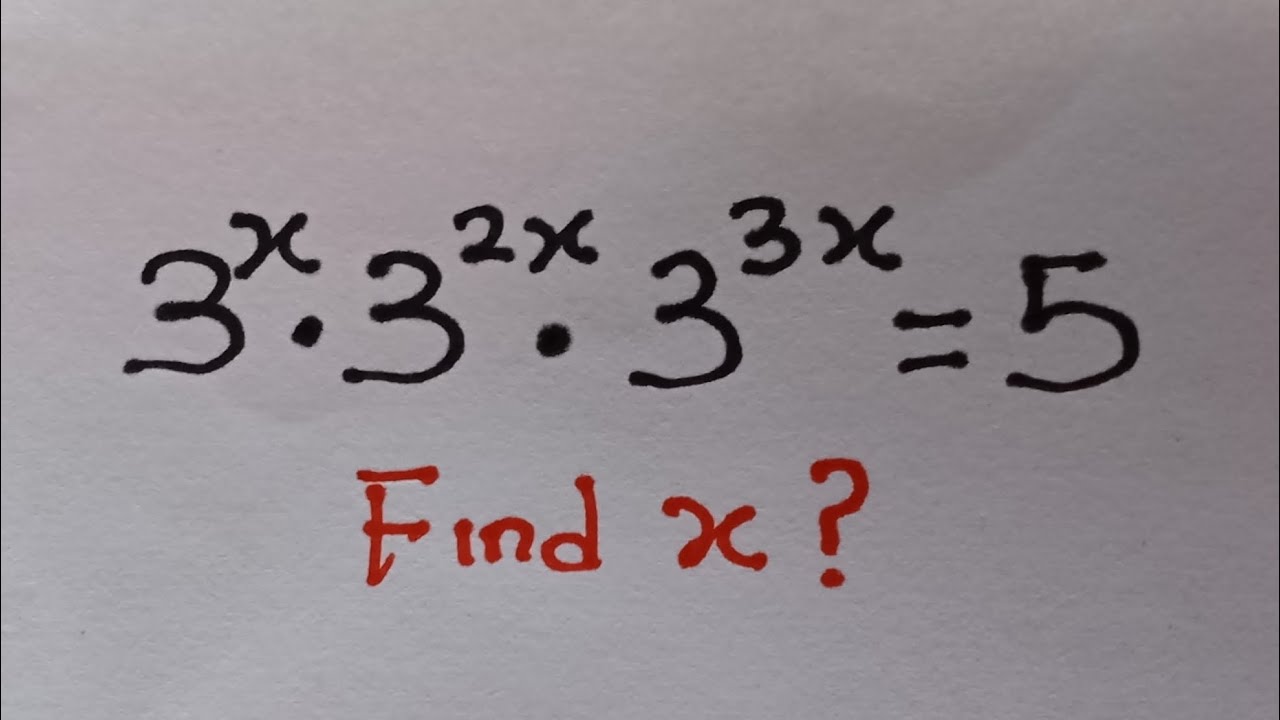 3ˣ · 3²ˣ · 3³ˣ = 5
Find x?